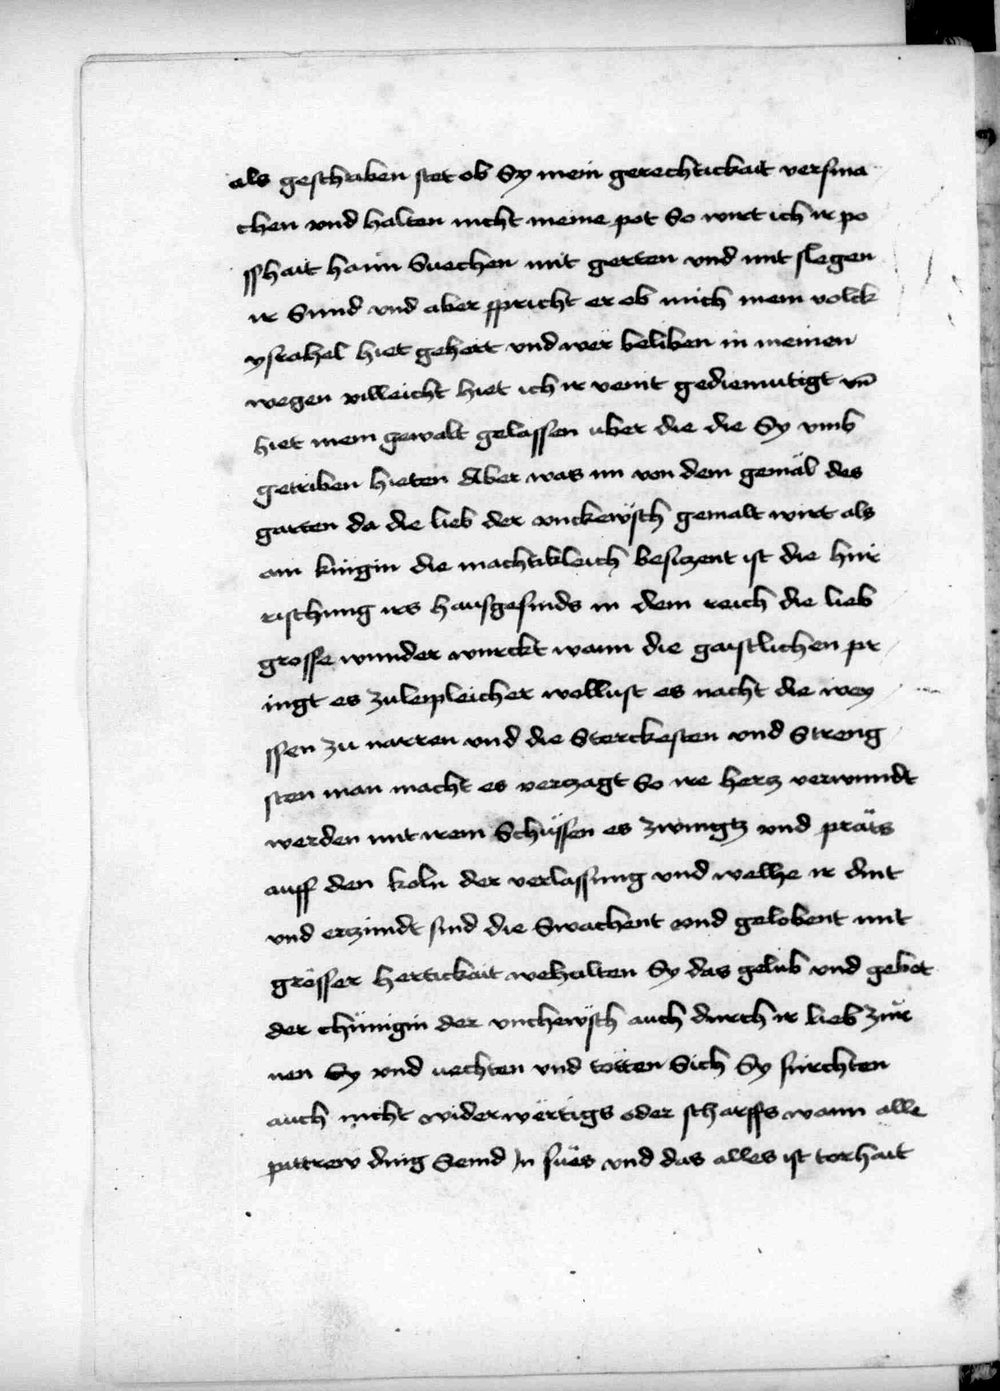 als geschriben stet ob Sy mein gerechtickait versma
chen vnd halten nicht meine pot So wirt ich ir po
sshait haim Suechen mit gerten vnd mit slegen
ir Sund vnd aber spricht er ob mich mein volck
ysrahel hiet gehört vnd wër beliben in meinen
wegen villeicht hiet ich ir veint gediemutigt vn̄
hiet mein gewalt gelassen uber die die Sy vmb
getriben hieten Aber was im von dem gemäl des
garten da die lieb der vnckewsch gemalt wirt als
ain kingin die machtikleich besiczent ist die hur
rischung irs hausgesinds in dem reich die lieb
grosse wunder wurckt wann die gaistlichen pr
ingt es zu leipleicher wollust es macht die wey
ssen zu narren vnd die Sterckesten vnd Streng
sten man macht es verczagt So ire hercz verwundt
werden mit irem Schüssen es zwingtz vnd präts
auff den koln der verlassung vnd welhe ir dint
vnd erczindt sind die Swachent vnd gelobent mit
grösser hertickait wehalten Sy das gelub vnd gebot
der chünigin der vnchewsch auch durch ir lieb zür
nen Sy vnd vechten vnd tötten Sich Sy fürchten
auch nicht widerwërtigs oder scharffs wann alle
pittrew ding Seind In süës vnd das alles ist torhait